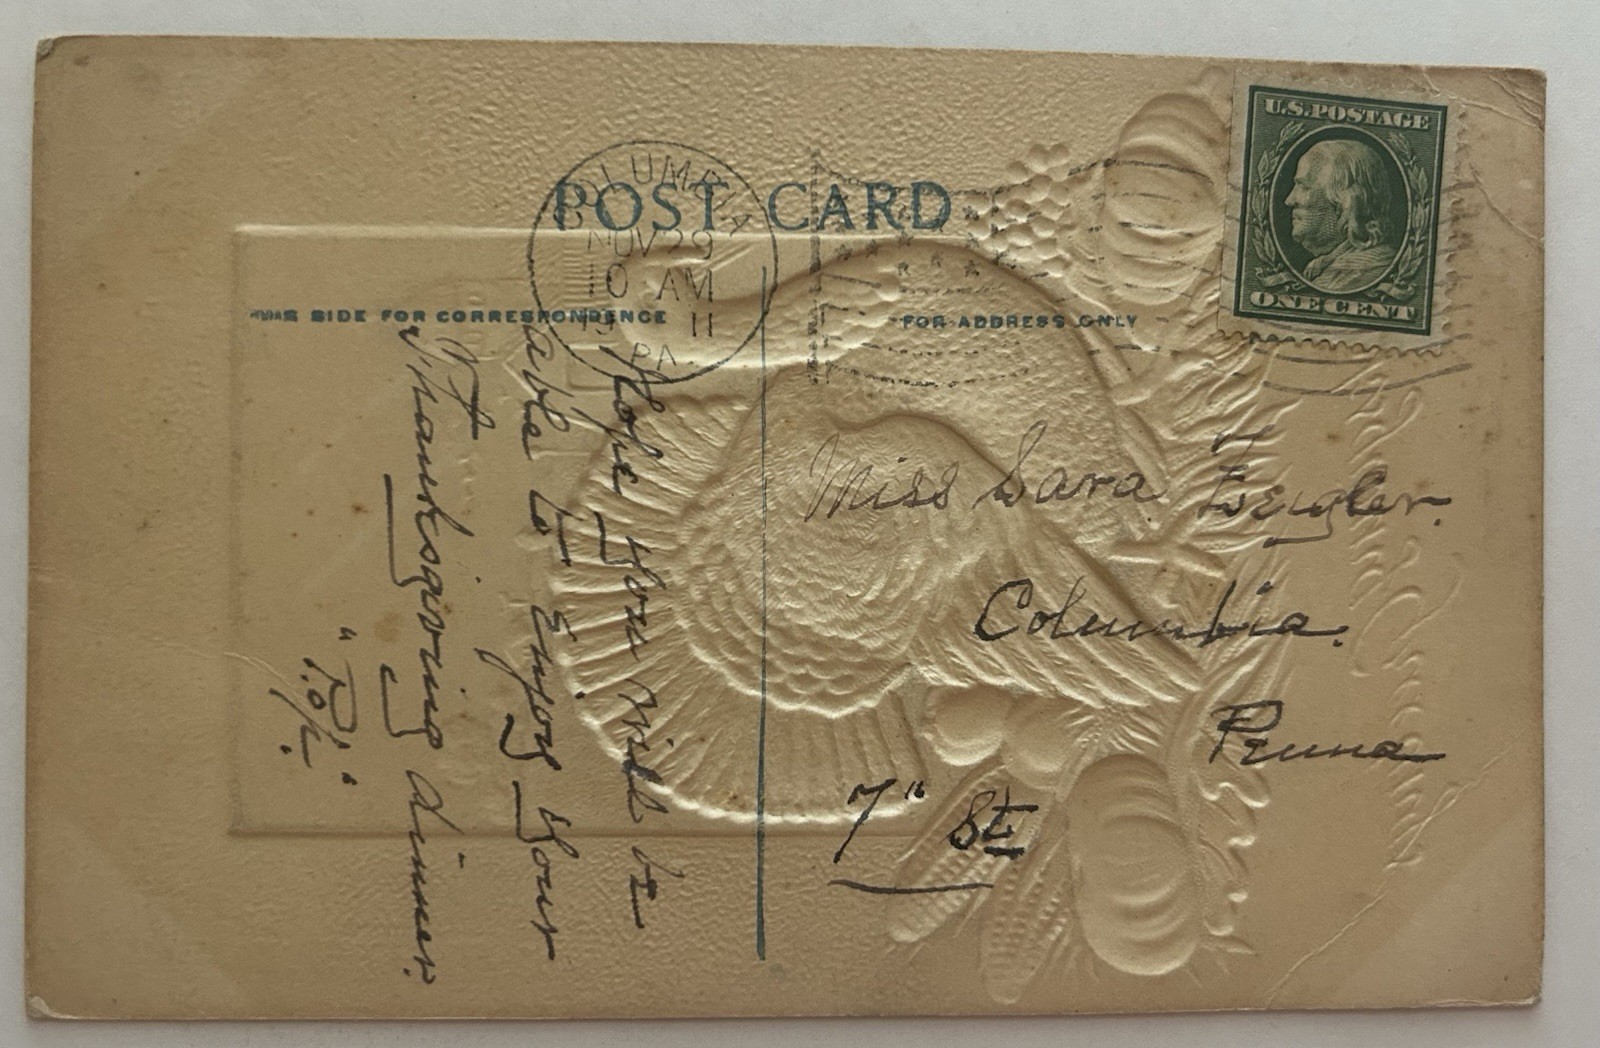 POST CARD
COLUMBIA
NOV 29
10 AM
1911
PA.
U.S. POSTAGE
ONE CENT
THIS SIDE FOR CORRESPONDENCE
FOR ADDRESS ONLY
Hope you will be
able to Enjoy your
Thanksgiving dinner.
"Pop."
Miss Sara Zeigler.
Columbia.
Penna
7" St